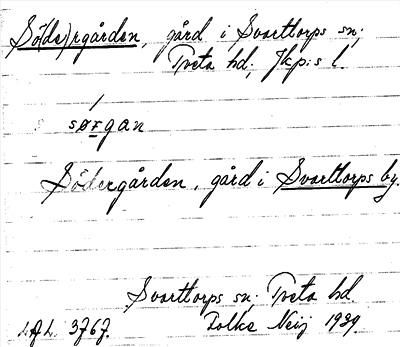 Sö(de)rgården, gård i Svarttorps sn;
Tveta hd; Jkp:s l.
sørgan
Södergården, gård i Svarttorps by.
Svarttorps sn; Tveta hd.
Folke Neij 1939.
3767.